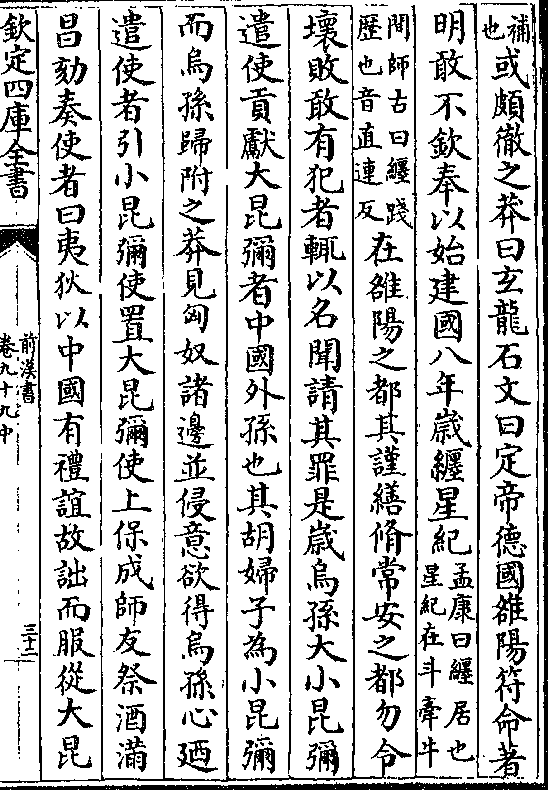 補也或頗徹之莽曰玄龍石文曰定帝德國雒陽符命著
明敢不欽奉以始建國八年歲纒星紀孟康曰纒居也星紀在斗牽牛
間師古曰纒踐歴也音直連反在雒陽之都其謹繕脩常安之都勿令
壞敗敢有犯者輒以名聞請其罪是歲烏孫大小昆彌
遣使貢獻大昆彌者中國外孫也其胡婦子為小昆彌
而烏孫歸附之莽見匈奴諸邊並侵意欲得烏孫心廼
遣使者引小昆彌使置大昆彌使上保成師友祭酒滿
昌劾奏使者曰夷狄以中國有禮誼故詘而服從大昆
欽定四庫全書
前漢書
卷九十九中
三十二